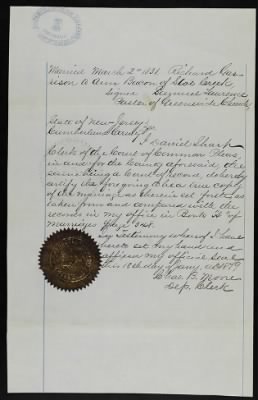 Married March 2nd 1831 Richard Gar-
rison to Ann Bacon of Stoe Creek
Signed Samuel Lawrence
Pastor of Greenwich Church
State of New-Jersey
Cumberland County } ss.
I Daniel Sharp
Clerk of the Court of Common Pleas
in and for the County aforesaid, the
same being a Court of Record, do hereby
certify the foregoing to be a true copy
of the marriage as therein set forth as
taken from and compared with the
records in my office in Book "B" of
Marriages Page 348.
In testimony whereof I have
hereto set my hand and
affixed my official seal
this 18th day of Jany. AD 1879
Chas. B. Moore
Dep. Clerk